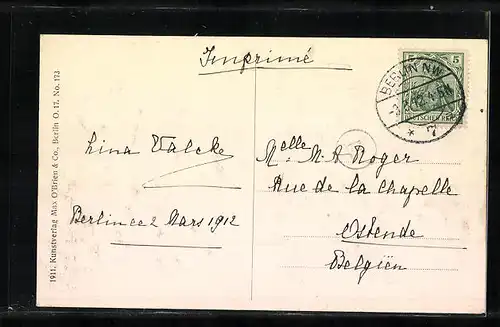 Imprimé
5 5
DEUTSCHES REICH
BERLIN NW.
* 7
Lina Valcke
Berlin ce 2 Mars 1912
Melle M. A Roger
Rue de la Chapelle
Ostende
Belgiën
1911. Kunstverlag Max O'Brien & Co., Berlin O. 17. No. 173